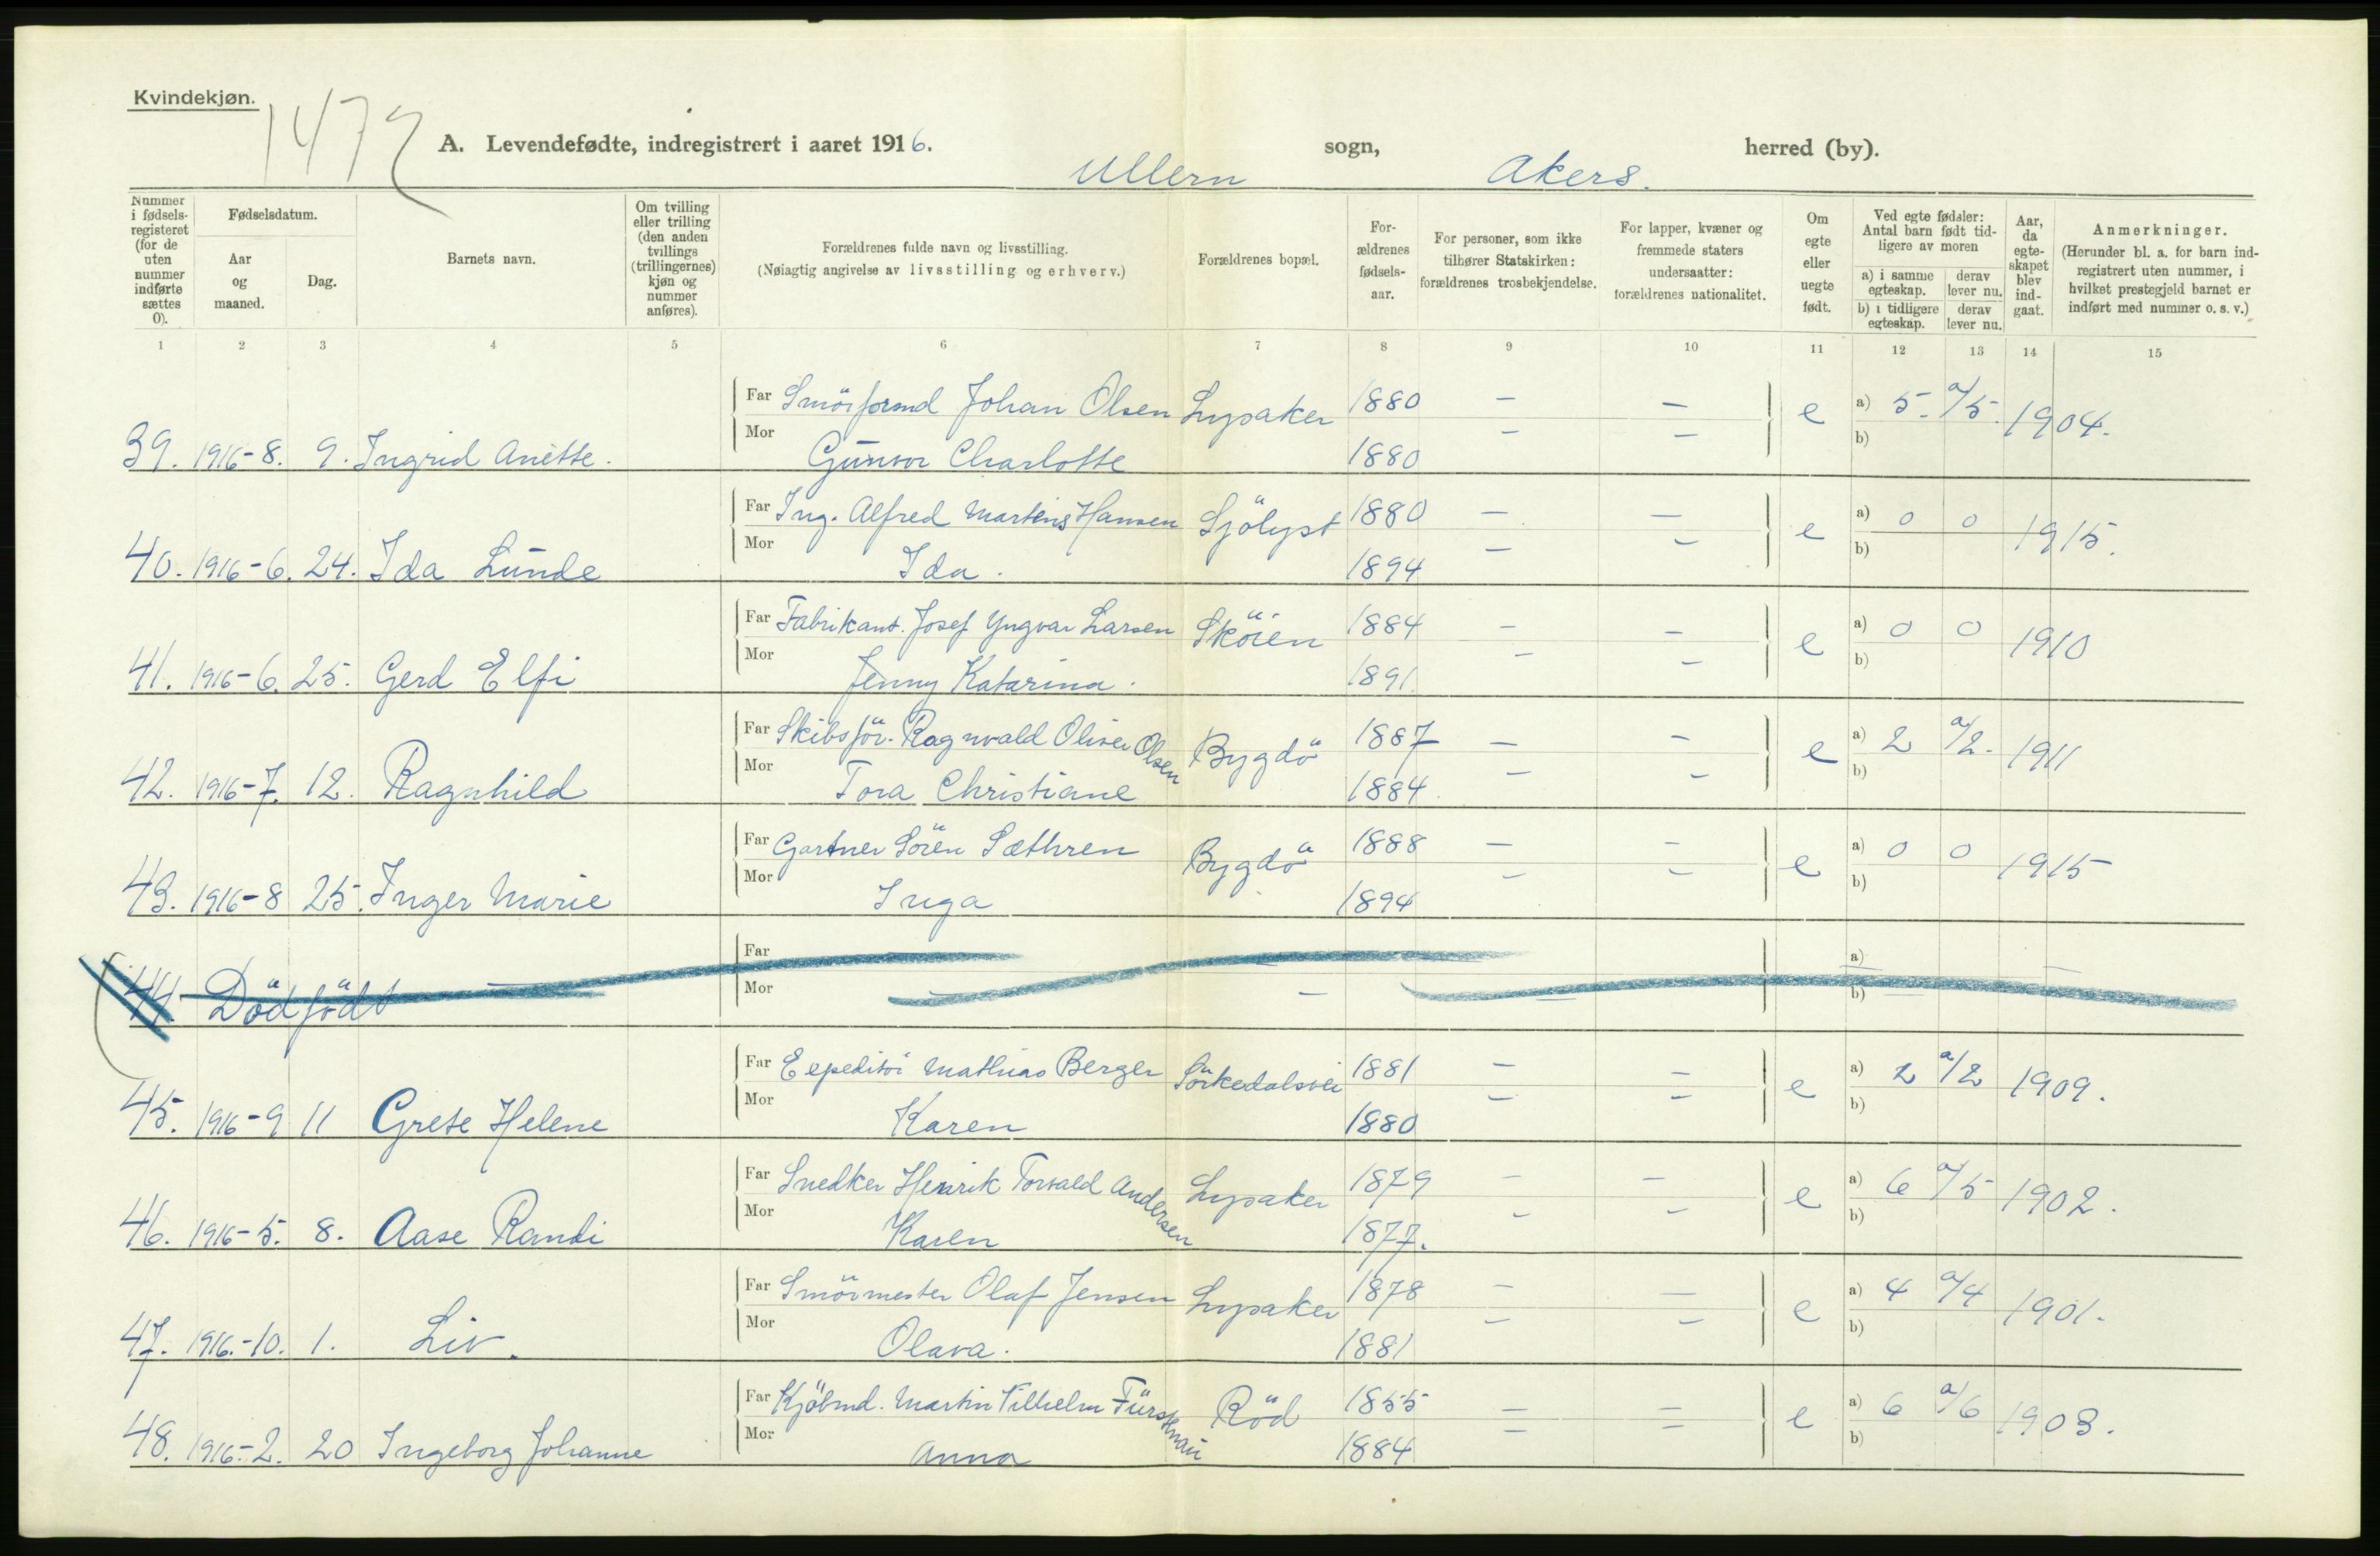 Kvindekjøn.
1472
A. Levendefødte, indregistrert i aaret 1916. Ullern sogn, Akers. herred (by).
Nummer i fødsels-registeret (for de uten nummer indførte sættes 0).
Fødselsdatum.
Aar og maaned.
Dag.
Barnets navn.
Om tvilling eller trilling (den anden tvillings (trillingernes) kjøn og nummer anføres).
Forældrenes fulde navn og livsstilling.
(Nøiagtig angivelse av livsstilling og erhverv.)
Forældrenes bopæl.
For-ældrenes fødsels-aar.
For personer, som ikke tilhører Statskirken: forældrenes trosbekjendelse.
For lapper, kvæner og fremmede staters undersaatter: forældrenes nationalitet.
Om egte eller uegte født.
Ved egte fødsler: Antal barn født tid-ligere av moren
a) i samme egteskap. derav lever nu.
b) i tidligere egteskap. derav lever nu.
Aar, da egte-skapet blev ind-gaat.
Anmerkninger.
(Herunder bl. a. for barn ind-registrert uten nummer, i hvilket prestegjeld barnet er indført med nummer o. s. v.)
1 2 3 4 5 6 7 8 9 10 11 12 13 14 15
Far Smörformd Johan Olsen Lysaker 1880 — — e a) 5. a/5. 1904.
39. 1916-8. 9. Ingrid Anette. Mor Gunvor Charlotte 1880 — — b)
Far Ing. Alfred Martens Hansen Sjölyst 1880 — — e a) 0 0 1915.
40. 1916-6. 24. Ida Lunde Mor Ida. 1894 — — b)
Far Fabrikant. Josef Yngvar Larsen Sköien 1884 — — e a) 0 0 1910
41. 1916-6. 25. Gerd Elfi Mor Jenny Katarina. 1891 — — b)
Far Skibsför. Ragnvald Oliver Olsen Bygdö 1887 — — e a) 2 a/2. 1911
42. 1916-7. 12. Ragnhild Mor Tora Christiane 1884 — — b)
Far Gartner Sören Sæthren Bygdö 1888 — — e a) 0 0 1915
43. 1916-8 25. Inger Marie Mor Inga 1894 — — b)
Far — a) —
44. Dödfödt — Mor — — — b) —
Far Expeditör Mathias Berger Sörkedalsvei 1881 — — e a) 2 a/2 1909.
45. 1916-9 11 Grete Helene Mor Karen 1880 — — b)
Far Snedker Henrik Torvald Andersen Lysaker 1879 — — e a) 6 a/5 1902.
46. 1916-5. 8. Aase Randi Mor Karen 1877. — — b)
Far Smörmester Olaf Jensen Lysaker 1878 — — e a) 4 a/4 1901.
47. 1916.-10. 1. Liv. Mor Olava. 1881 — — b)
Far Kjöbmd. Martin Vilhelm Röd 1855 — — e a) 6 a/6 1903.
48. 1916.-2. 20 Ingeborg Johanne Mor Anna 1884 — — b)